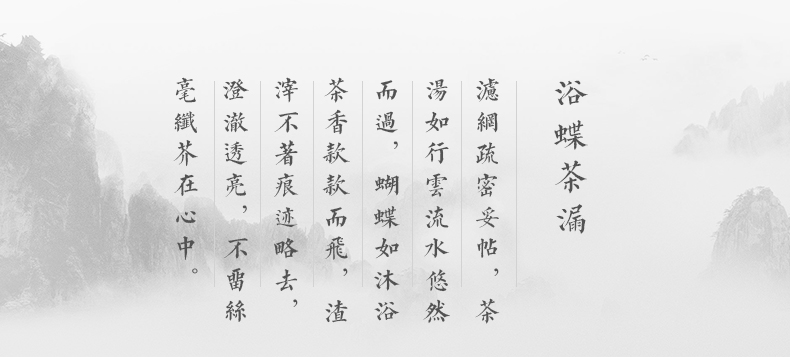 浴蝶茶漏
濾網疏密妥帖，茶
湯如行雲流水悠然
而過，蝴蝶如沐浴
茶香款款而飛，渣
滓不著痕迹略去，
澄澈透亮，不畱絲
毫纖芥在心中。